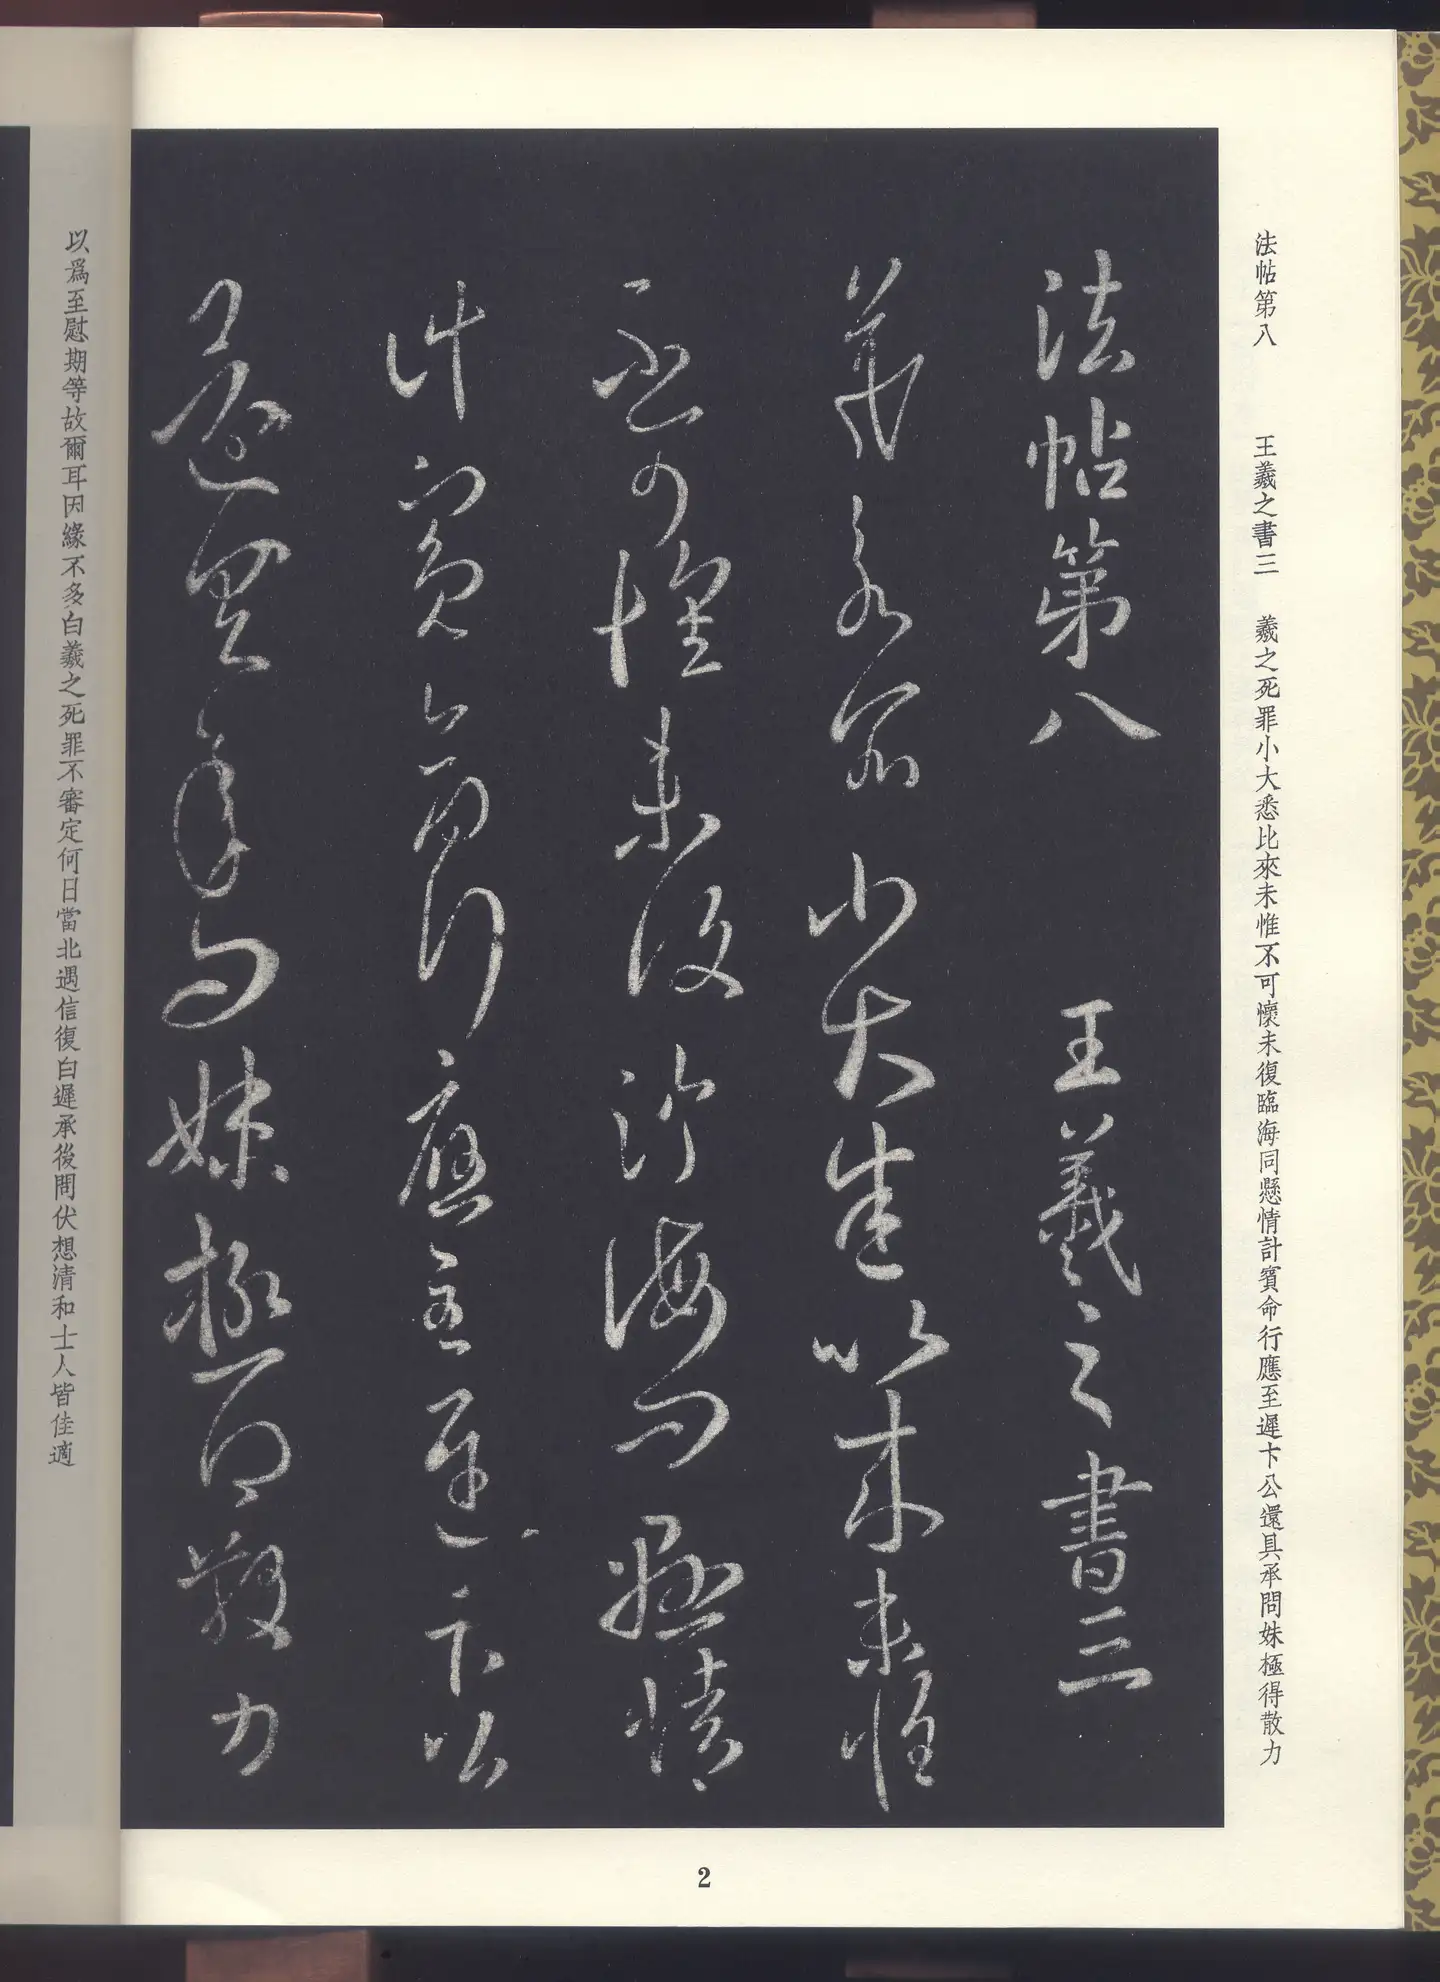 法帖第八 王羲之書三 羲之死罪小大悉比來未惟不可懷未復臨海同懸情計賓命行應至遲卞公還具承問妹極得散力
法帖第八 王羲之書三
羲之死罪小大悉比來未惟
不可懷未復臨海同懸情
計賓命行應至遲卞公
還具承問妹極得散力
2
以爲至慰期等故爾耳因緣不多白羲之死罪不審定何日當北遇信復白遲承後問伏想清和士人皆佳適